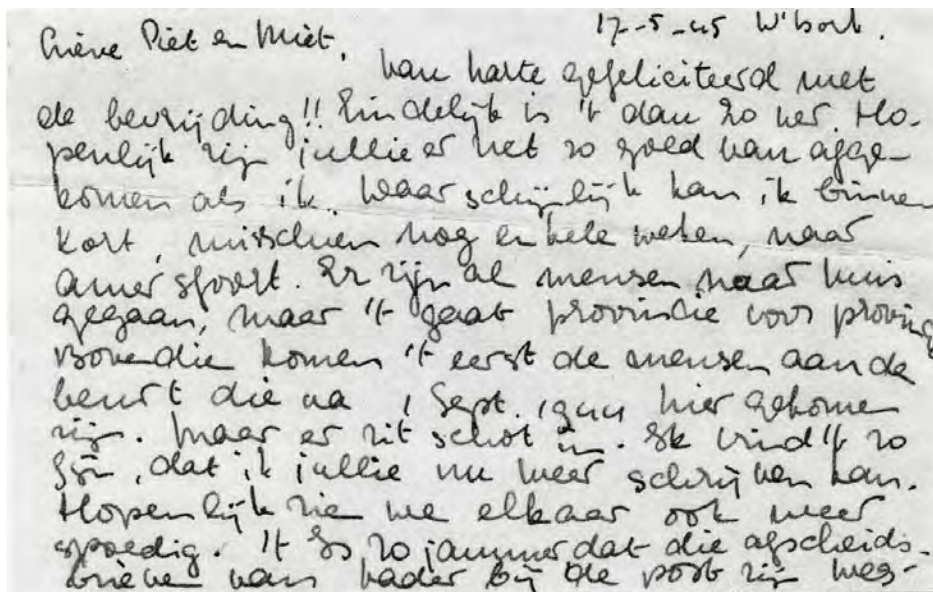 17-5-45 W'bork.
Lieve Piet en Miet,
Van harte gefeliciteerd met
de bevrijding!! Eindelijk is 't dan zo ver. Ho-
penlijk zijn jullie er net zo goed van afge-
komen als ik. Waarschijnlijk kan ik binnen
kort, misschien nog enkele weken, naar
Amersfoort. Er zijn al mensen naar huis
gegaan, maar 't gaat provincie voor provincie
Bovendie komen 't eerst de mensen aan de
beurt die na 1 Sept. 1944 hier gekomen
zijn. Maar er zit schot in. Ik vind 't zo
fijn, dat ik jullie nu weer schrijven kan.
Hopenlijk zien we elkaar ook weer
spoedig. 't Is zo jammer dat die afscheids-
brieven van Vader bij de post zijn weg-